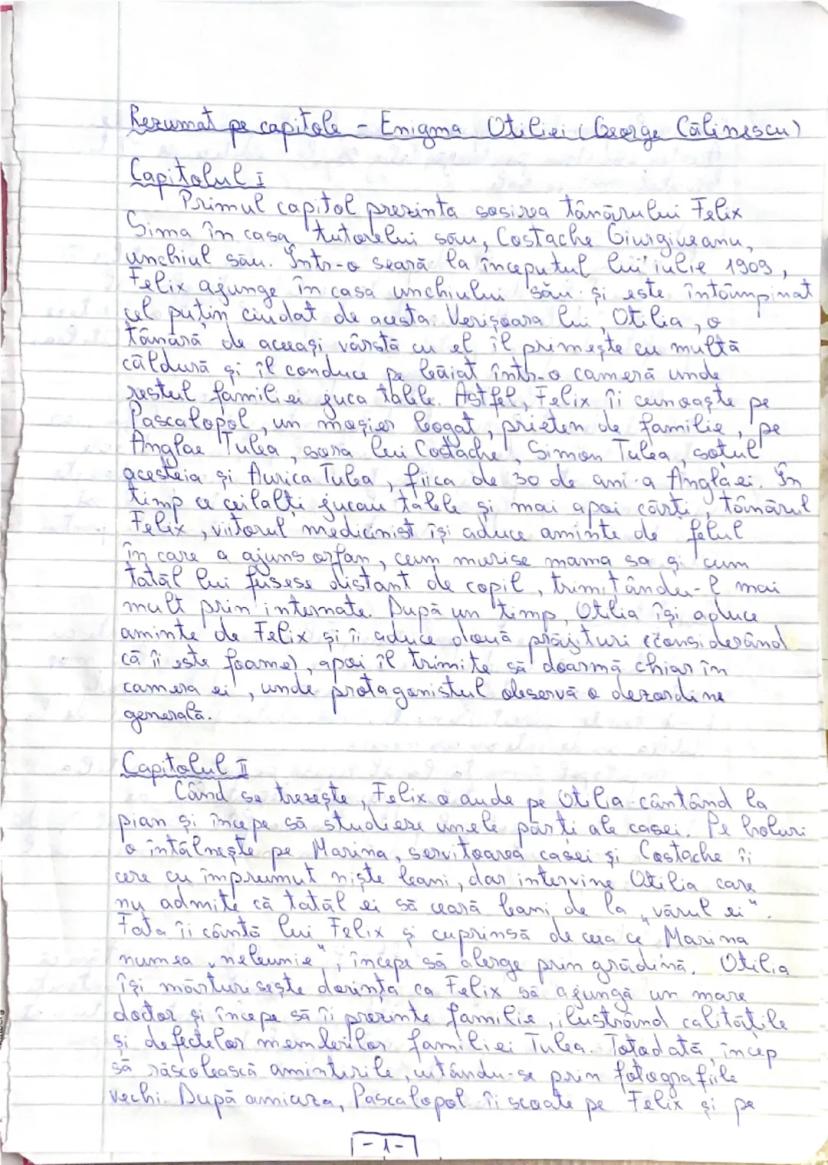 Rezumat pe capitole - Enigma Otiliei (George Călinescu)
Capitolul I
Primul capitol prezinta sosirea tânărului Felix
Sima în casa tutorelui său, Costache Giurgiuveanu,
unchiul său. Într-o seară la începutul lui iulie 1909,
Felix ajunge în casa unchiului său și este întâmpinat
cel puțin ciudat de acesta. Verișoara lui, Otilia, o
tânără de aceeași vârstă cu el îl primește cu multă
căldură și îl conduce pe băiat într-o cameră unde
restul familiei juca table. Astfel, Felix îi cunoaște pe
Pascalopol, un moșier bogat, prieten de familie, pe
Anglae Tulea, sora lui Costache, Simon Tulea, soțul
acesteia și Aurica Tulea, fiica de 30 de ani a Anglaei. În
timp ce ceilalți jucau table și mai apoi cărți, tânărul
Felix, viitorul medicinist își aduce aminte de felul
în care a ajuns orfan, cum murise mama sa și cum
tatăl lui fusese distant de copil, trimitându-l mai
mult prin internate. După un timp, Otilia își aduce
aminte de Felix și îi aduce două prăjituri (considerând
că îi este foame), apoi îl trimite să doarmă chiar în
camera ei, unde protagonistul observă o dezordine
generală.
Capitolul II
Când se trezește, Felix o aude pe Otilia cântând la
pian și începe să studieze unele părți ale casei. Pe holuri
o întâlnește pe Marina, servitoarea casei și Costache îi
cere cu împrumut niște bani, dar intervine Otilia care
nu admite că tatăl ei să ceară bani de la „vărul ei".
Fata îi cântă lui Felix și cuprinsă de ceea ce Marina
numea „nebunie", începe să alerge prin grădină. Otilia
își mărturisește dorința ca Felix să ajungă un mare
doctor și începe să îi prezinte familie, ilustrând calitățile
și defectelor membrilor familiei Tulea. Totodată, încep
să răscolească amintirile, uitându-se prin fotografiile
vechi. După amiaza, Pascalopol îi scoate pe Felix și pe
-1-